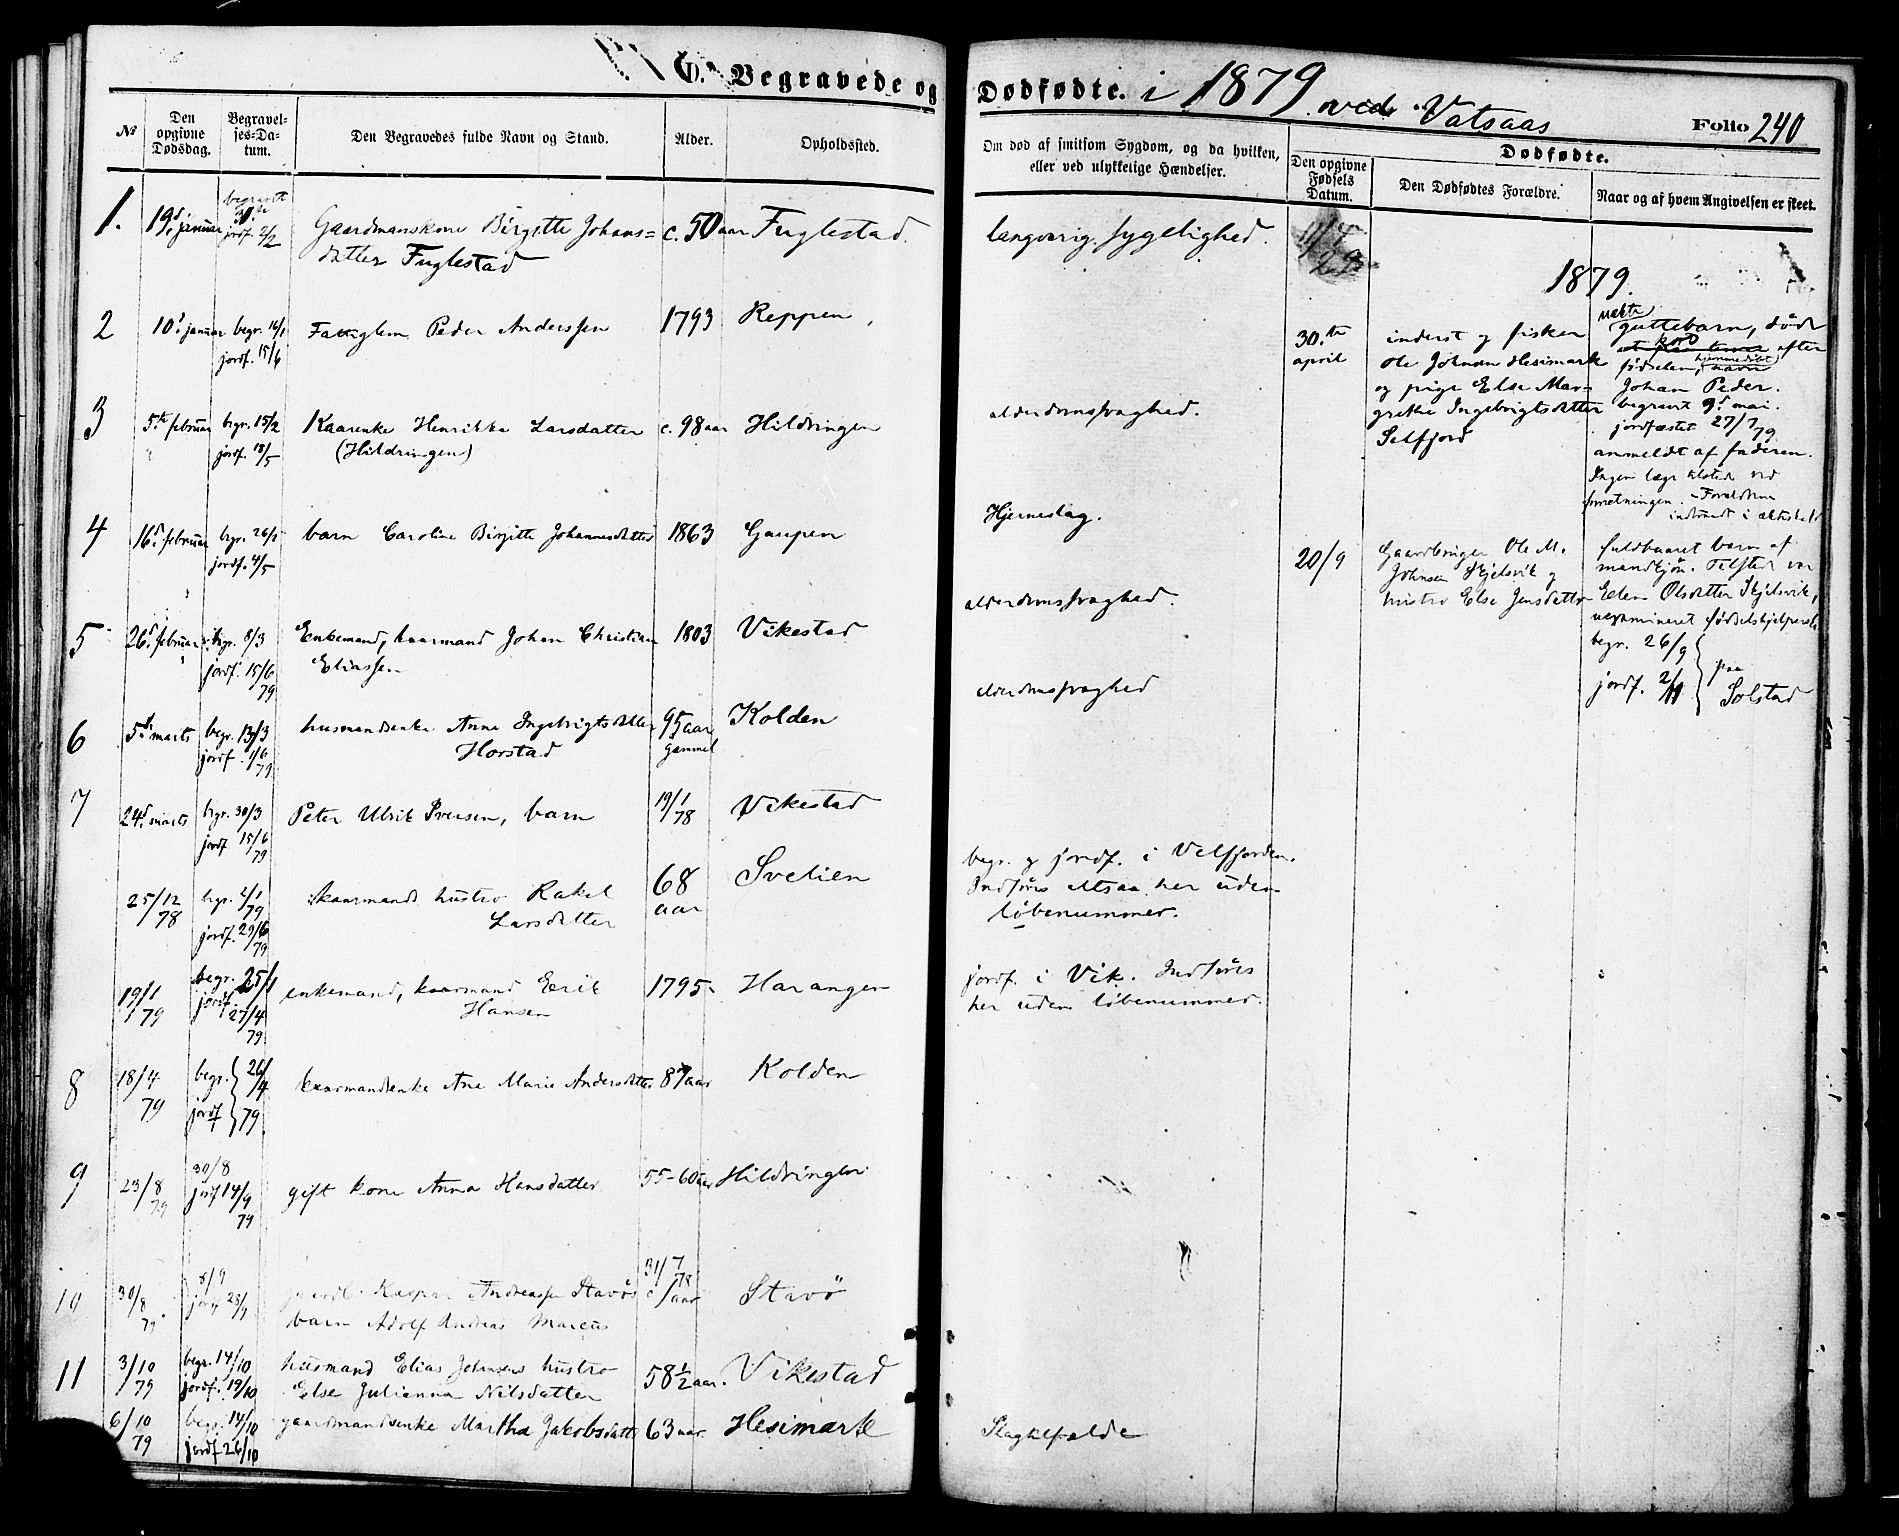 G. Begravede og Dødfødte. i 1879 ved Vatsaas
Folio 240
№
Den opgivne Dødsdag.
Begravelses-Datum.
Den Begravedes fulde Navn og Stand.
Alder.
Opholdssted.
Om død af smitsom Sygdom, og da hvilken,
eller ved ulykkelige Hændelser.
Dødfødte.
Den opgivne Fødsels Datum.
Den Dødfødtes Forældre.
Naar og af hvem Angivelsen er skeet.
1. 19d januar begravet jordf. 2/2 Gaardmanskone Birgitte Johans=
datter Fuglestad c. 50 aar Fuglestad.
langvarig sygelighed.
2 10d januar begr. 16/1 Fattiglem Peder Anderssen 1793 Reppen
jordf. 15/6
3 5te februar begr. 15/2 Kaarenke Henrikka Larsdatter c. 98 aar Hildringen
jordf. 18/5 (Hildringen)
alderdomssvaghed.
4 16d februar begr. 26/2 barn Caroline Birgitte Johannesdatter 1863 Gaupen
jordf. 4/5
Hjerneslag.
5 26d februar begr. 8/3 Enkemand, kaarmand Johan Christian 1803 Vikestad
jordf. 15/6 79 Eliassen
alderdomssvaghed.
6 5te marts begr. 13/3 husmandsenke Anne Ingebrigtsdatter 95 aar gammel Kolden
jordf. 1/6 79 Horstad
alderdomssvaghed
7 24d marts begr. 30/3 Peter Ulrik Iversen, barn 19/1 78 Vikestad
jordf 15/6 79
25/12 78 begr. 2/1 79 kaarmands hustro Rakel 68 aar Svelien
jordf. 29/6 79 Larsdatter
begr. og jordf. i Velfjorden.
Indføres altsaa her uden
løbenummer.
19/1 79 begr. 25/1 enkemand, kaarmand Erik 1795 Haranger
jordf. 27/4 79 Hansen
jordf. i Vik. Indføres
her uden løbenummer.
8 18/4 79 begr. jordf 26/4 79 kaarmandsenke Ane Marie Andersdatter 87 aar Kolden
9 23/8 79 30/8 jordf 14/9 79 gift kone Anna Hansdatter 55-60 aar Hildringen
10 30/8 79 8/9 Kaspar Andreassen Stavøs 31/7 78 c 1 aar Stavö
barn Adolf Andreas Marcus
11 3/10 79 begr. 14/10 husmand Elias Johnsens hustro 58 1/2 aar. Vikestad
jordf. 19/10 Else Julianna Nilsdatter
6/10 79 begr. 14/10 gaardmandsenke Martha Jakobsdatt 63 aar. Hesimark
jordf 26/10
1879.
30.te april
inderst og fisker
Ole Johnsen Hesimark
og pige Else Mar-
grethe Ingebrigtsdatter
Selfjord
uægte
guttebarn, død
efter
fødselen, hjemmedøbt
Johan Peder.
begravet 9d mai.
jordfæstet 27/7 79
anmeldt af faderen.
Ingen læge tilstede ved
forretningen. Forældrene
20/9
Gaardbruger Ole M.
Johnsen Skjelsvik og
hustro Else Jensdatter
fuldbaaret barn af
mandkjøn. Tilstede var
Elen Olsdatter Skjelsvik,
uexamineret fødselshjelperske
begr. 26/9
jordf. 2/11 paa Solstad